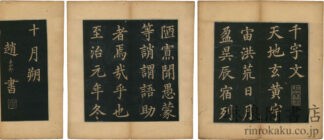 千字文
天地玄黃宇
宙洪荒日月
盈昃辰宿列
陋寡聞愚蒙
等誚謂語助
者焉哉乎也
至治元年冬
十月朔
趙
書
www.rinrokaku.co.jp